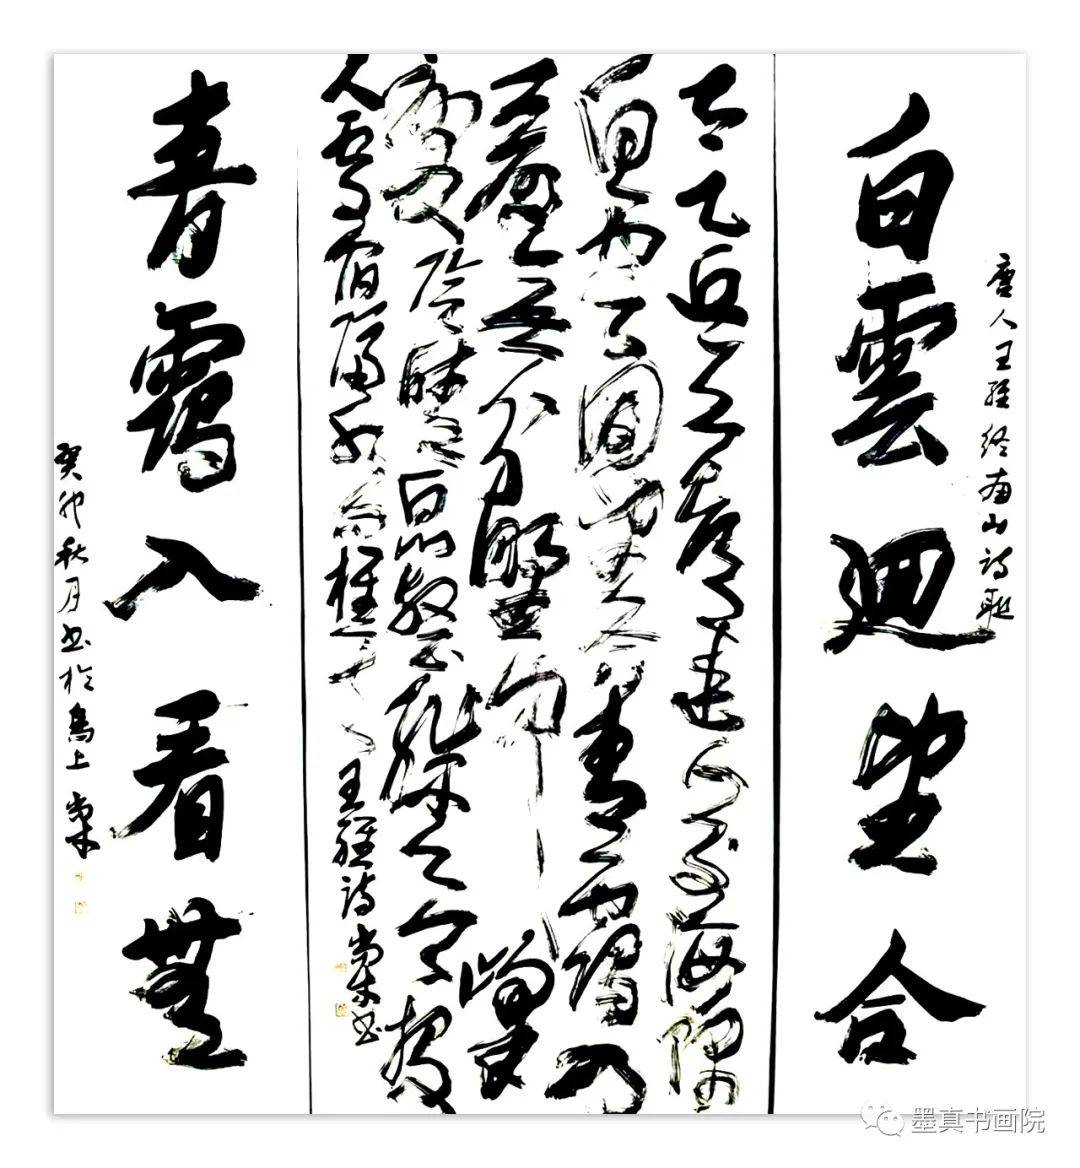 白雲迴望合
唐人王維終南山詩聯
太乙近天都連山到海隅
白雲回望合青靄入
看無分壄中峰變
陰晴眾壑殊欲投
人處宿隔水問樵夫
王維詩
青靄入看無
癸卯秋月书於島上
墨真书画院